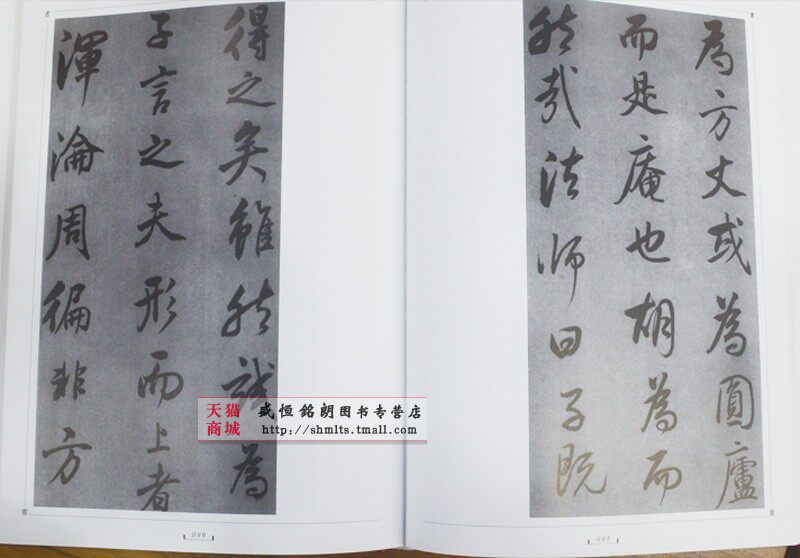 為方丈或為圓廬
而是庵也胡為而
然哉法師曰子既
098
得之矣雖然試為
子言之夫形而上者
渾淪周徧非方
099
天猫
商城
盛恒銘朗图书专营店
http://shmlts.tmall.com